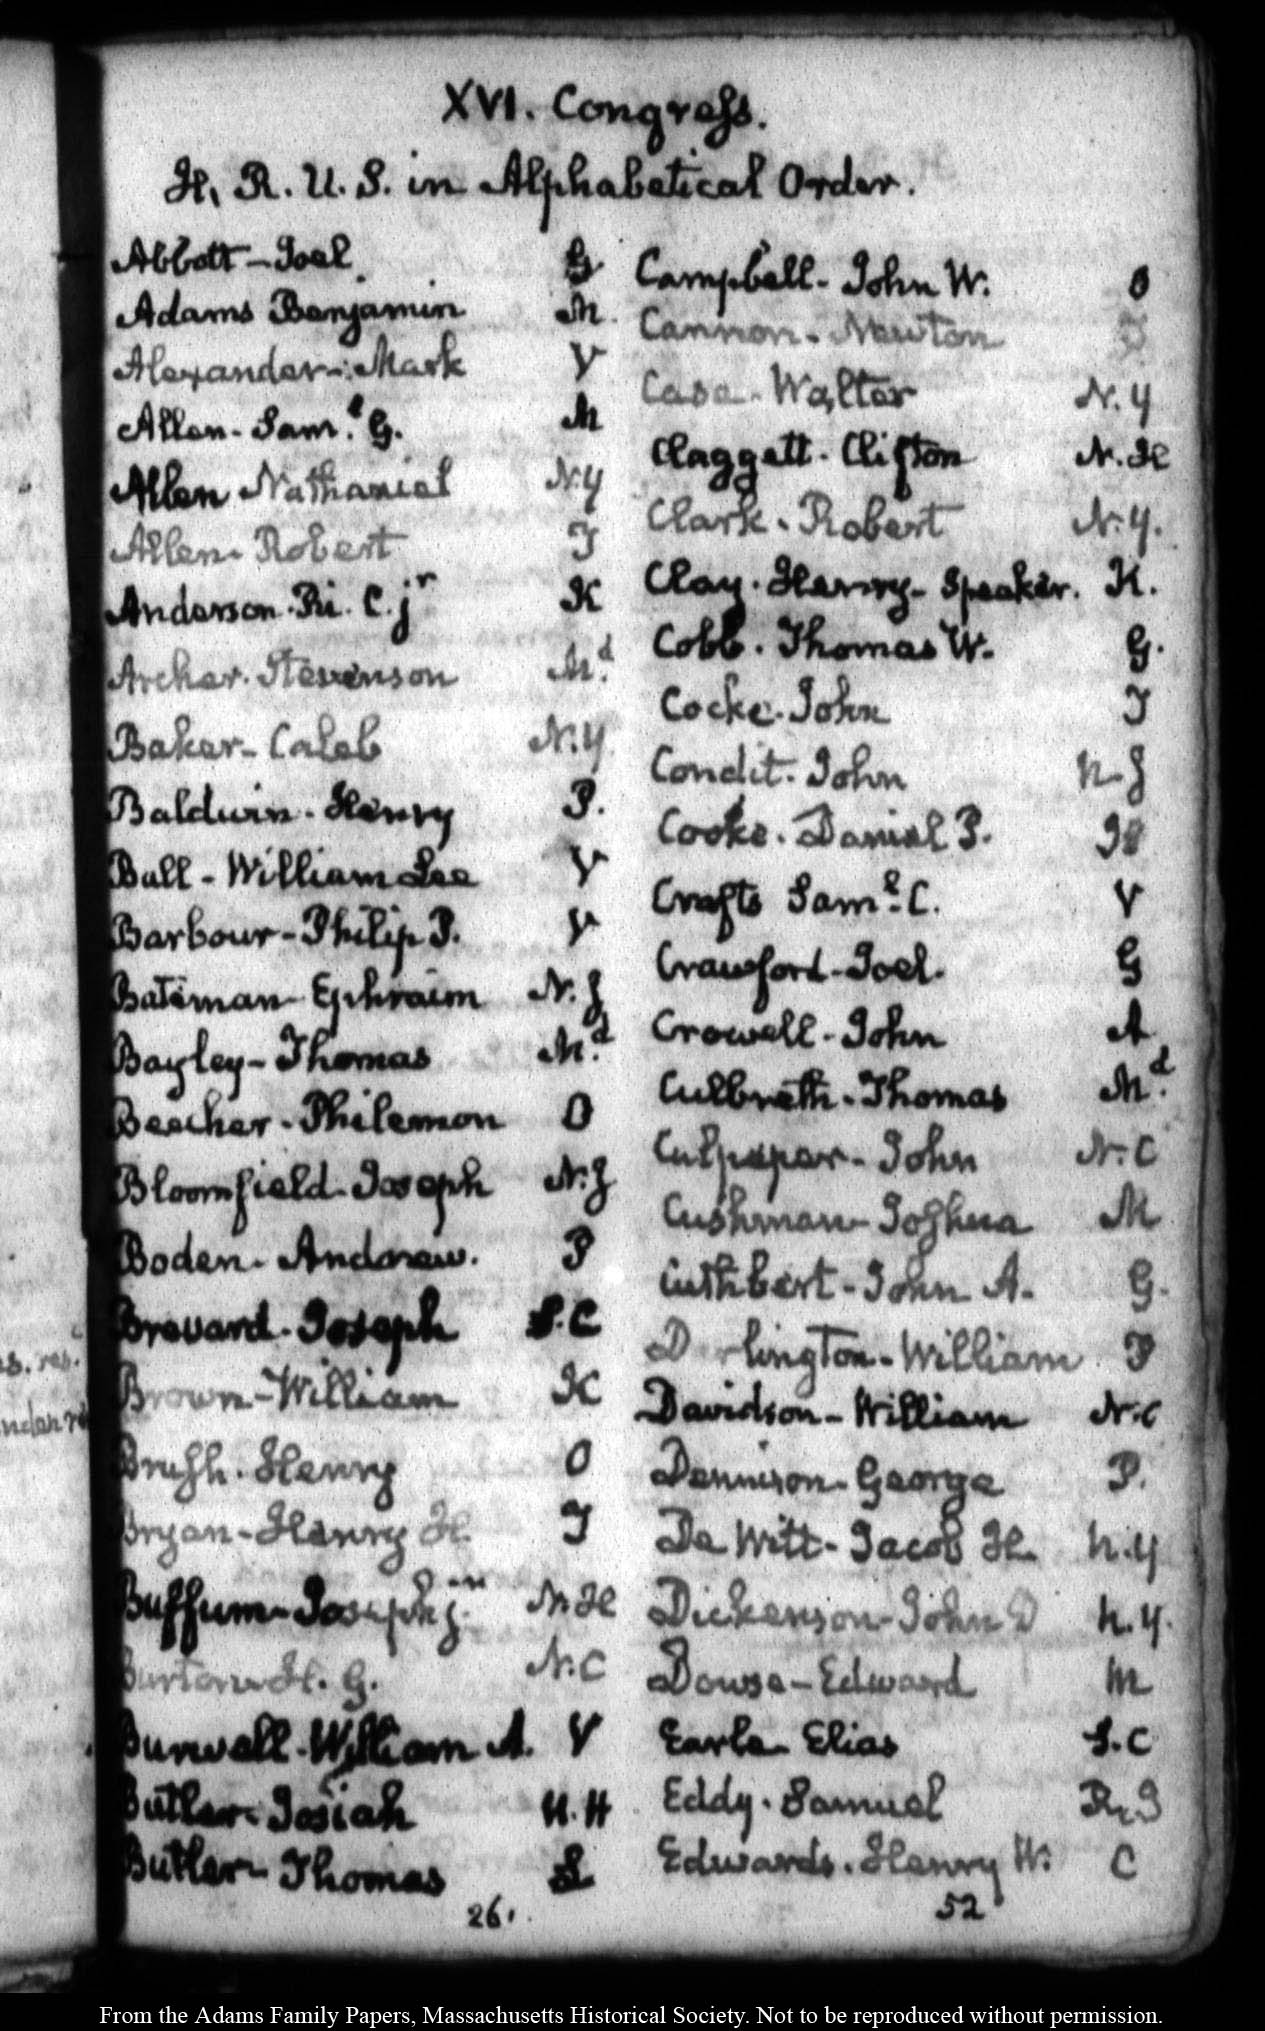 XVI. Congress.
H. R. U. S. in Alphabetical Order.
Abbott - Joel G
Adams Benjamin M.
Alexander - Mark V
Allen - Saml. G. M
Allen Nathaniel N.Y
Allen - Robert T
Anderson. Ri. C. jr K
Archer. Stevenson Md.
Baker - Caleb N.Y
Baldwin - Henry P.
Ball - William Lee V
Barbour - Philip P. V
Bateman - Ephraim N.J
Bayley - Thomas Md.
Beecher - Philemon O
Bloomfield - Joseph N.J
Boden - Andrew. P
Brevard - Joseph S.C
Brown - William K
Brush. Henry O
Bryan - Henry H. T
Buffum - Joseph jr. N.H
Burton - H. G. N.C
Burwell - William A. V
Butler - Josiah N.H
Butler - Thomas L
26.
Campbell - John W. O
Cannon - Newton T
Case - Walter N.Y
Claggett - Clifton N.H
Clark - Robert N.Y.
Clay - Henry - Speaker. K.
Cobb. Thomas W. G.
Cocke. John T
Condit. John N.J
Cooke. Daniel P. Il
Crafts Saml. C. V
Crawford - Joel. G
Crowell - John A
Culbreth - Thomas Md.
Culpeper - John N.C
Cushman - Joshua M
Cuthbert - John A. G.
Darlington - William P
Davidson - William N.C
Dennison - George P.
De Witt - Jacob H. N.Y
Dickenson - John D N.Y.
Dowse - Edward M
Earle - Elias S.C
Eddy. Samuel R.I
Edwards. Henry W. C
52
as. res.
From the Adams Family Papers, Massachusetts Historical Society. Not to be reproduced without permission.